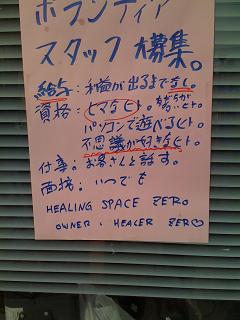 ボランティア
スタッフ大募集。
給与：利益が出るまでなし。
資格：ヒマなヒト。
パソコンで遊べるヒト。
不思議が好きなヒト。
仕事：お客さんと話す。
面接：いつでも
HEALING SPACE ZERO
OWNER・HEALER ZERO♡